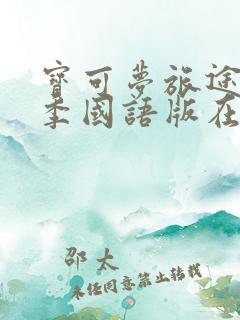 寶可夢旅途
季國語版在
邵太
未经同意禁止转载